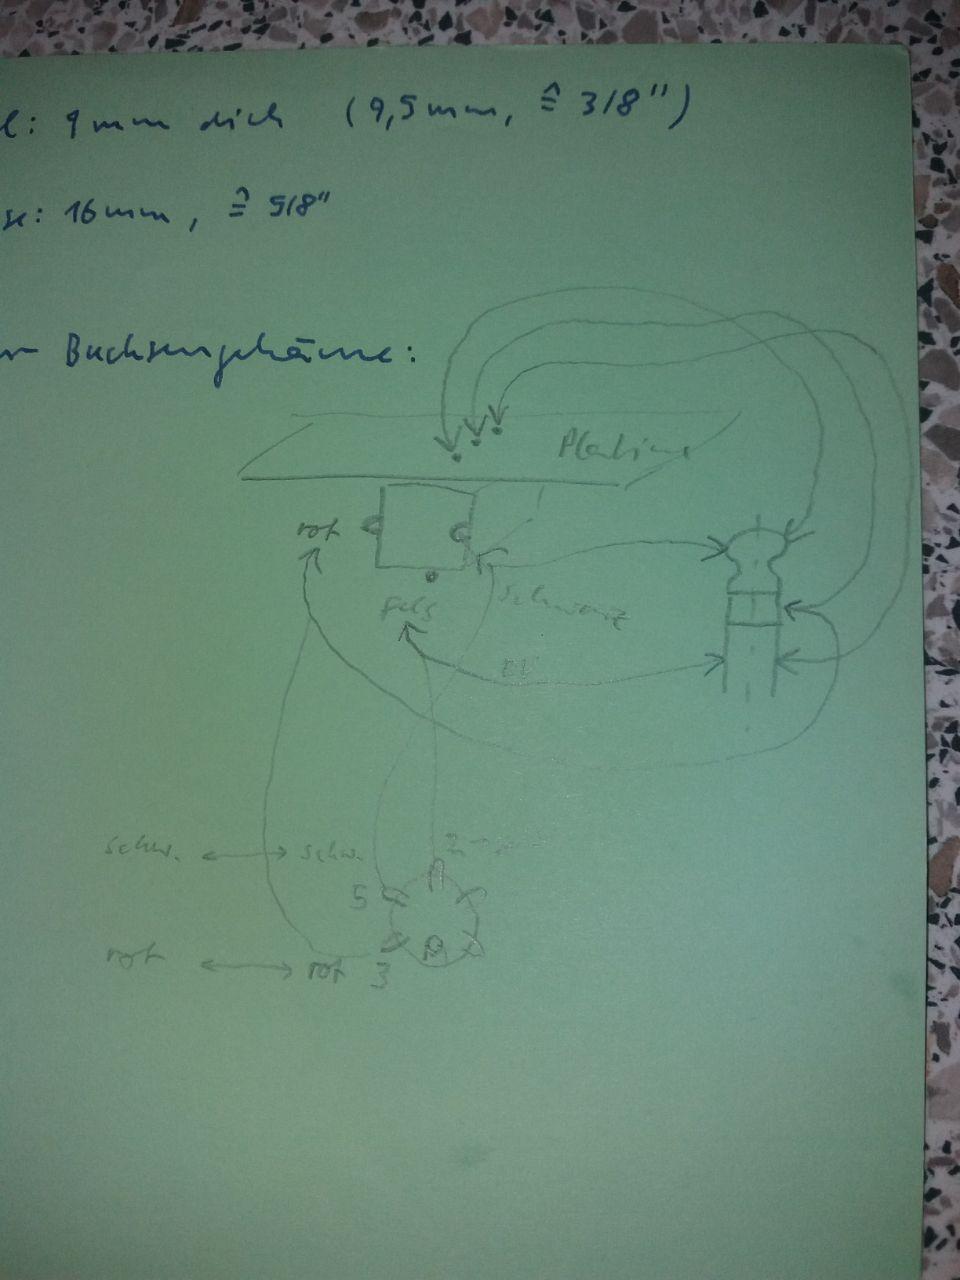 l: 9mm dick (9,5mm, ≙ 3/8")
se: 16mm, ≙ 5/8"
Buchsengehäuse:
Platine
rot
schwarz
gelb
schw. ↔ schw.
2
5
rot ↔ rot 3